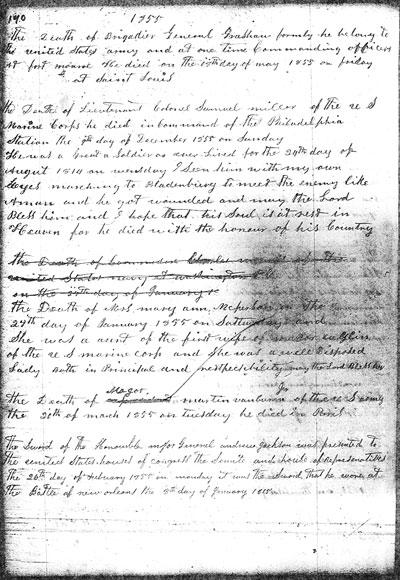 190 1855
the Death of Brigadier General Grashaw formly he belong to
the united States army and at one time Commanding officers
At fort monroe He died on the 18th day of may 1855 on friday
at Saint Louis
the Death of Lieutenant Colonel Samuel miller of the u S
Marine Corps he died in command of the Philadelphia
Station the 9th day of December 1855 on Sunday
He was a Great a Soldier as ever Lived for the 24th day of
August 1814 on wensday I Seen him with my own
Eyes marching to Bladenburg to meet the enemy like
A man and he got wounded and may the Lord
Bless him and I hope that his Soul is at rest in
Heaven for he died with the honour of his Country
the Death of Charles of the
united States navy
on the day of January
the Death of Mrs mary ann the
27th day of January 1855 on Satturday and
She was a aunt of the first wife of
of the u S marine Corp and She was a well Disposed
Lady Both in Principal and respectibility may the Lord Bless her
Major Jr
the Death of martin vanburen of the u S army
the 20th of march 1855 on tuesday he died In Paris
the Sword of the Honourable major General andrew Jackson was presented to
the united States houses of congress the Senate and house of
the 26th day of February 1855 on monday it was the Sword that he wore at
the Battle of new orleans the 8th day of January 1815